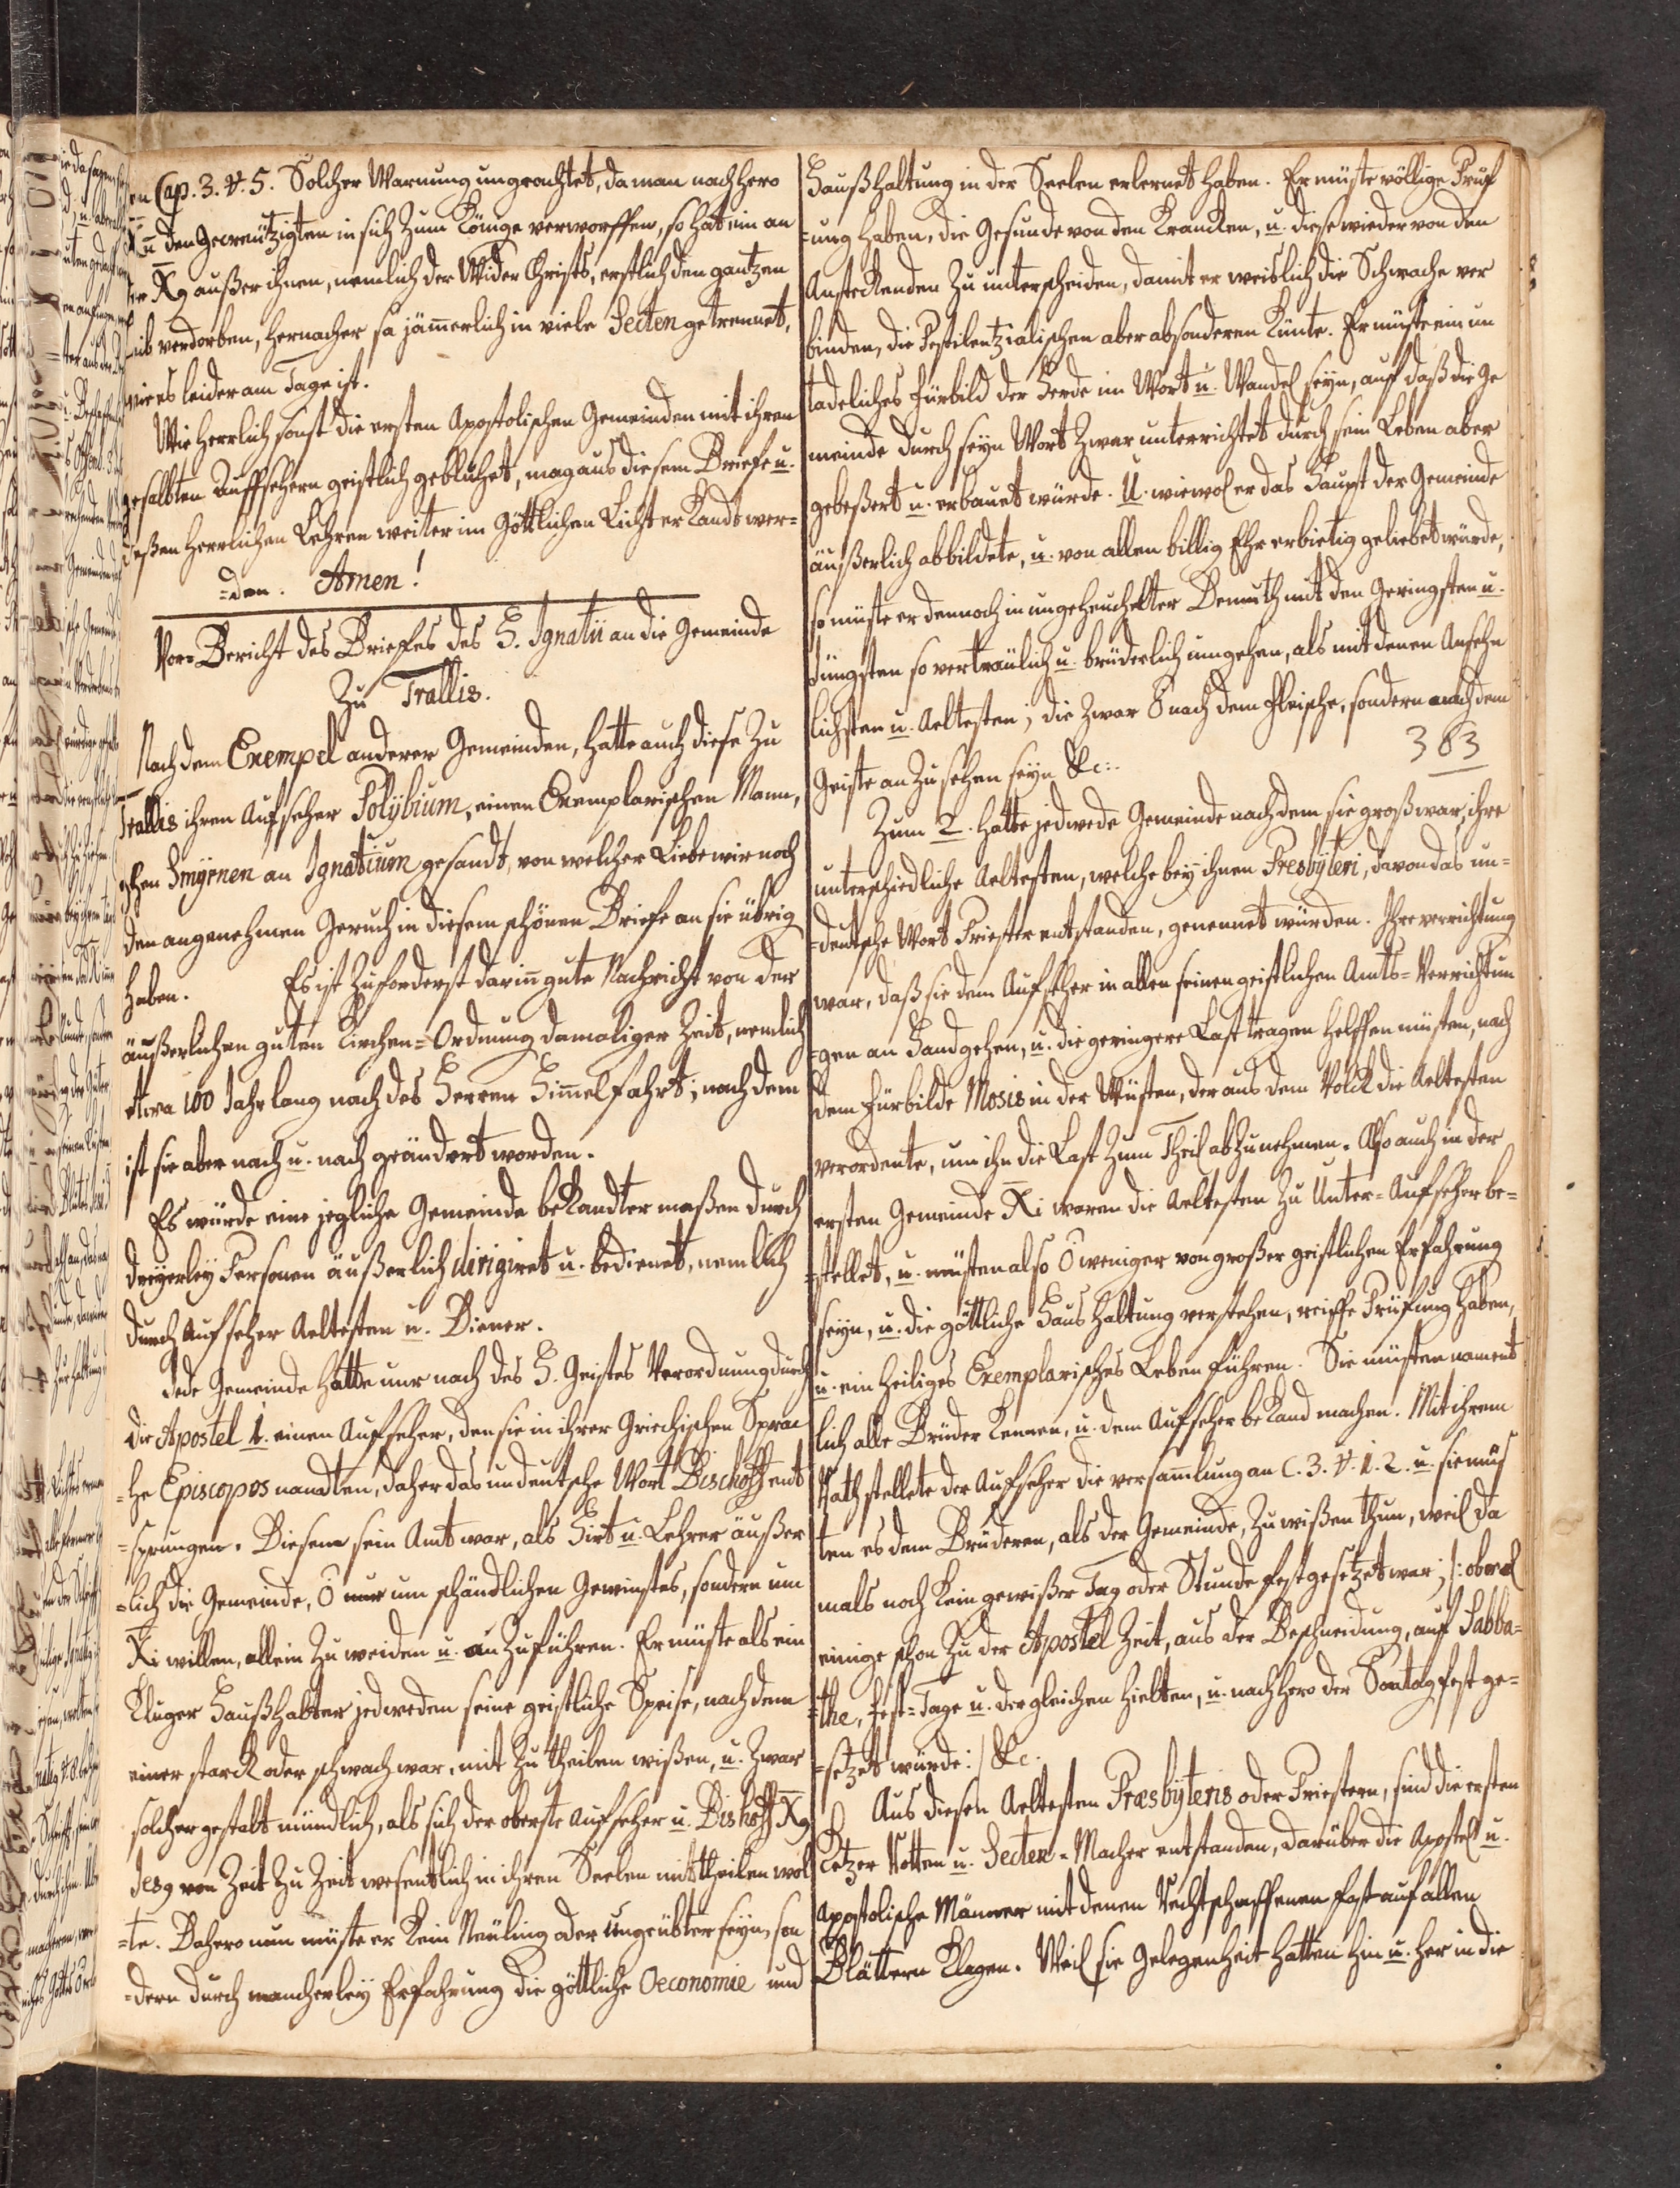 en Cap. 3. V. 5. Solcher Warnung ungeachtet, da man nachhero
den Gecreützigten in sich zum Könige verworffen, so hat ein an
der X9 außer ihnen, nemlich der Wider Christs, erstlich den gantzen
verdorben, hernacher so jämerlich in viele Secten getrennet,
wie es leider am Tage ist.
Wie herrlich sonst die ersten Apostolischen Gemeinden mit ihren
gesalbten Auffsehern geistlich geblühet, mag aus diesem Briefe u.
deßen herrlichen Lehren weiter im Göttlichen Licht erkandt wer=
=den. Amen!
Vor=Bericht des Briefes des H. Ignatii an die Gemeinde
Zu Trallis.
Nach dem Exempel anderer Gemeinden, hatte auch diese Zu
Trallis ihren Aufseher Polybium, einen Exemplarischen Mann,
ghen Smyrnen an Ignatium gesandt, von welcher Liebe wir noch
den angenehmen Geruch in diesem schönen Briefe an sie übrig
haben. Es ist Zuforderst darin gute Nachricht von der
äußerlichen guten Kirchen=Ordnung damaliger Zeit, nemlich
etwa 100 Jahr lang nach des Herren Himelfahrt; nach dem
ist sie aber nach u. nach geändert worden.
Es würde eine jegliche Gemeinde bekandter maßen durch
dreyerley Personen äußerlich dirigiret u. bedienet, nemlich
durch Aufseher Aeltesten u. Diener.
Jede Gemeinde hatte nur nach des H. Geistes Verordnung durch
die Apostel 1. einen Aufseher, den sie in ihrer Griechischen Sprac
=he Episcopos nandten, daher das undeutsche Wort Bischoff ent
=sprungen. Diesem sein Amt war, als Hirt u. Lehrer äußer
=lich die Gemeinde, O nur um schändlichen Gewinstes, sondern um
Xi willen, allein Zu weiden u. anzuführen. Er müste als ein
Kluger Haußhalter jedweden seine geistliche Speise, nach dem
einer starck oder schwach war, mit Zu theilen wißen, u. Zwar
solcher gestalt mündlich, als sich der oberste Aufseher u. Bischoff X9
Jes9 von Zeit Zu Zeit wesentlich in ihren Seelen mittheilen wol
=te. Dahero nun müste er Kein Neuling oder ungeübter seyn, son
=dern durch mancherley Erfahrung die göttliche Oeconomie und
Haußhaltung in der Seelen erlernet haben. Er müste völlige Prüf
=ung haben, die Gesunde von den Krancken, u. diese wieder von den
Ansteckenden Zu unterscheiden, damit er weislich die Schwache ver
binden, die Pestilentzialischen aber absonderen Künte. Er müste ein un
tadeliches Fürbild der Herde im Wort u. Wandel seyn, auf daß die Ge
meinde durch seyn Wort Zwar unterrichtet durch sein Leben aber
gebeßert u. erbauet würde. U. wiewol er das Haupt der Gemeinde
äußerlich abbildete, u. von allen billig Ehrerbietig geliebet würde,
so müste er dennoch in ungeheuchelter Demuth mit den Geringsten u.
Jüngsten so vertraülich u. brüderlich umgehen, als mit denen Ansehn
lichsten u. Aeltesten, die Zwar O nach dem Fleische, sondern nach dem
383
Geiste anzusehen seyn &c:.
Zum 2. hatte jedwede Gemeinde nach dem sie groß war, ihre
unterschiedliche Aeltesten, welche bey ihnen Presbyteri, davon das un=
=deutsche Wort Priester entstanden, genennet würden. Ihre verrichtung
war, daß sie dem Aufseher in allen seinen geistlichen Amts=Verrichtun
=gen an Hand gehen, u. die geringere Last tragen helffen müsten, nach
dem Fürbilde Mosis in der Wüsten, der aus dem Volck die Aeltesten
verordente, um ihn die Last Zum Theil abzunehmen. Also auch in der
ersten Gemeinde Xi waren die Aeltesten Zu Unter=Aufseher be=
=stellet, u. müsten also O weniger von großer geistlichen Erfahrung
seyn, u. die göttliche Haushaltung verstehen, reiffe Prüfung haben,
u. ein heiliges Exemplarisches Leben führen. Sie müsten nament
lich alle Brüder Kennen, u. dem Aufseher bekand machen. Mit ihrem
Rath stellete der Aufseher die versamlung an C. 3. V. 1. 2. u. sie müs
ten es dem Brüderen, als der Gemeinde, Zu wißen thun, weil da
mals noch Kein gewißer Tag oder Stunde festgesetzet war; /: obwol
einige schon Zu der Apostel Zeit, aus der Beschneidung, auf Sabba=
=the, Fest=Tage u. dergleichen hielten, u. nachhero der Sontag fest ge=
=setzet würde :/ &c.
Aus diesen Aeltesten Præsbyteris oder Priestern, sind die ersten
Ketzer Rotten u. Secten=Macher entstanden, darüber die Apostel u.
Apostolische Männer mit denen Rechtschaffenen fast auf allen
Blättern Klagen. Weil sie Gelegenheit hatten hin u. her in die